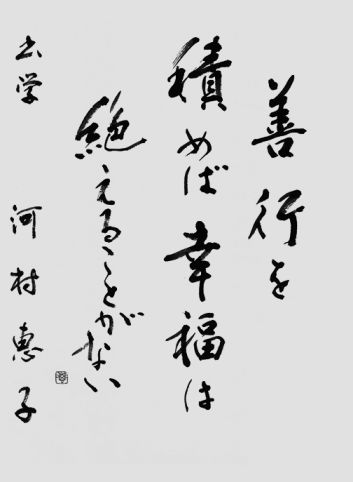 善行を
積めば幸福は
絶えることがない
河村恵子